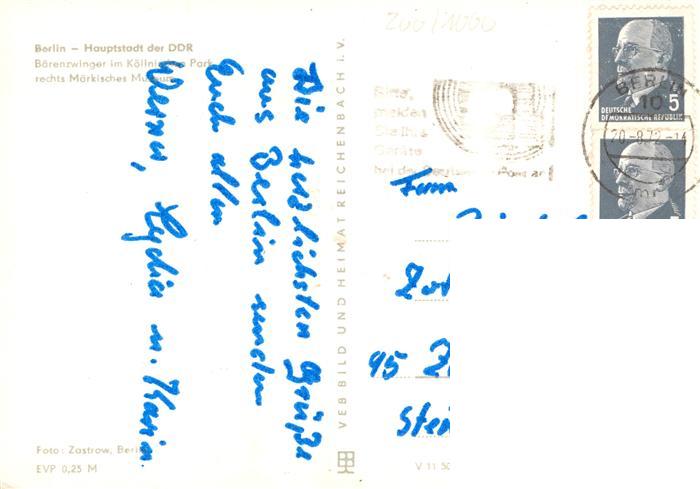 200/1000
Berlin – Hauptstadt der DDR
Bärenzwinger im Köllnischen Park
rechts Märkisches Museum
Die herzlichsten Grüße
aus Berlin senden
Euch allen
Werner, Lydia u. Karin.
Foto: Zastrow, Berlin
EVP 0,25 M
VEB BILD UND HEIMAT REICHENBACH I. V.
V 11 50
Bitte,
melden
Sie Ihre
Geräte
bei der Deutschen Post an
BERLIN
10
20.-8.72.-14
5
DEUTSCHE
DEMOKRATISCHE REPUBLIK
Fam
95